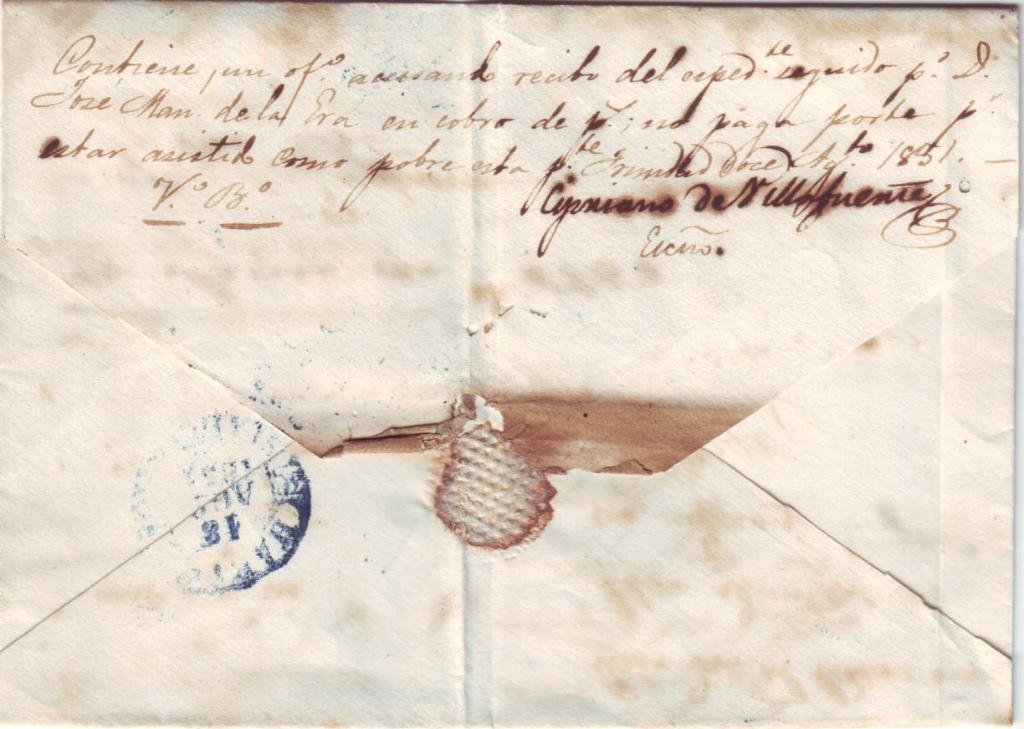 Contiene, un of.º acusando recibo del esped.te seguido p.r D.
José Man. de la Era en cobro de p.s; no paga porte p.r
estar asistido como pobre esta p.te Trinidad doce Ag.to 1851.
V.º B.º
Cipriano de Villafuente
Escno.
18
AG
185
HABA